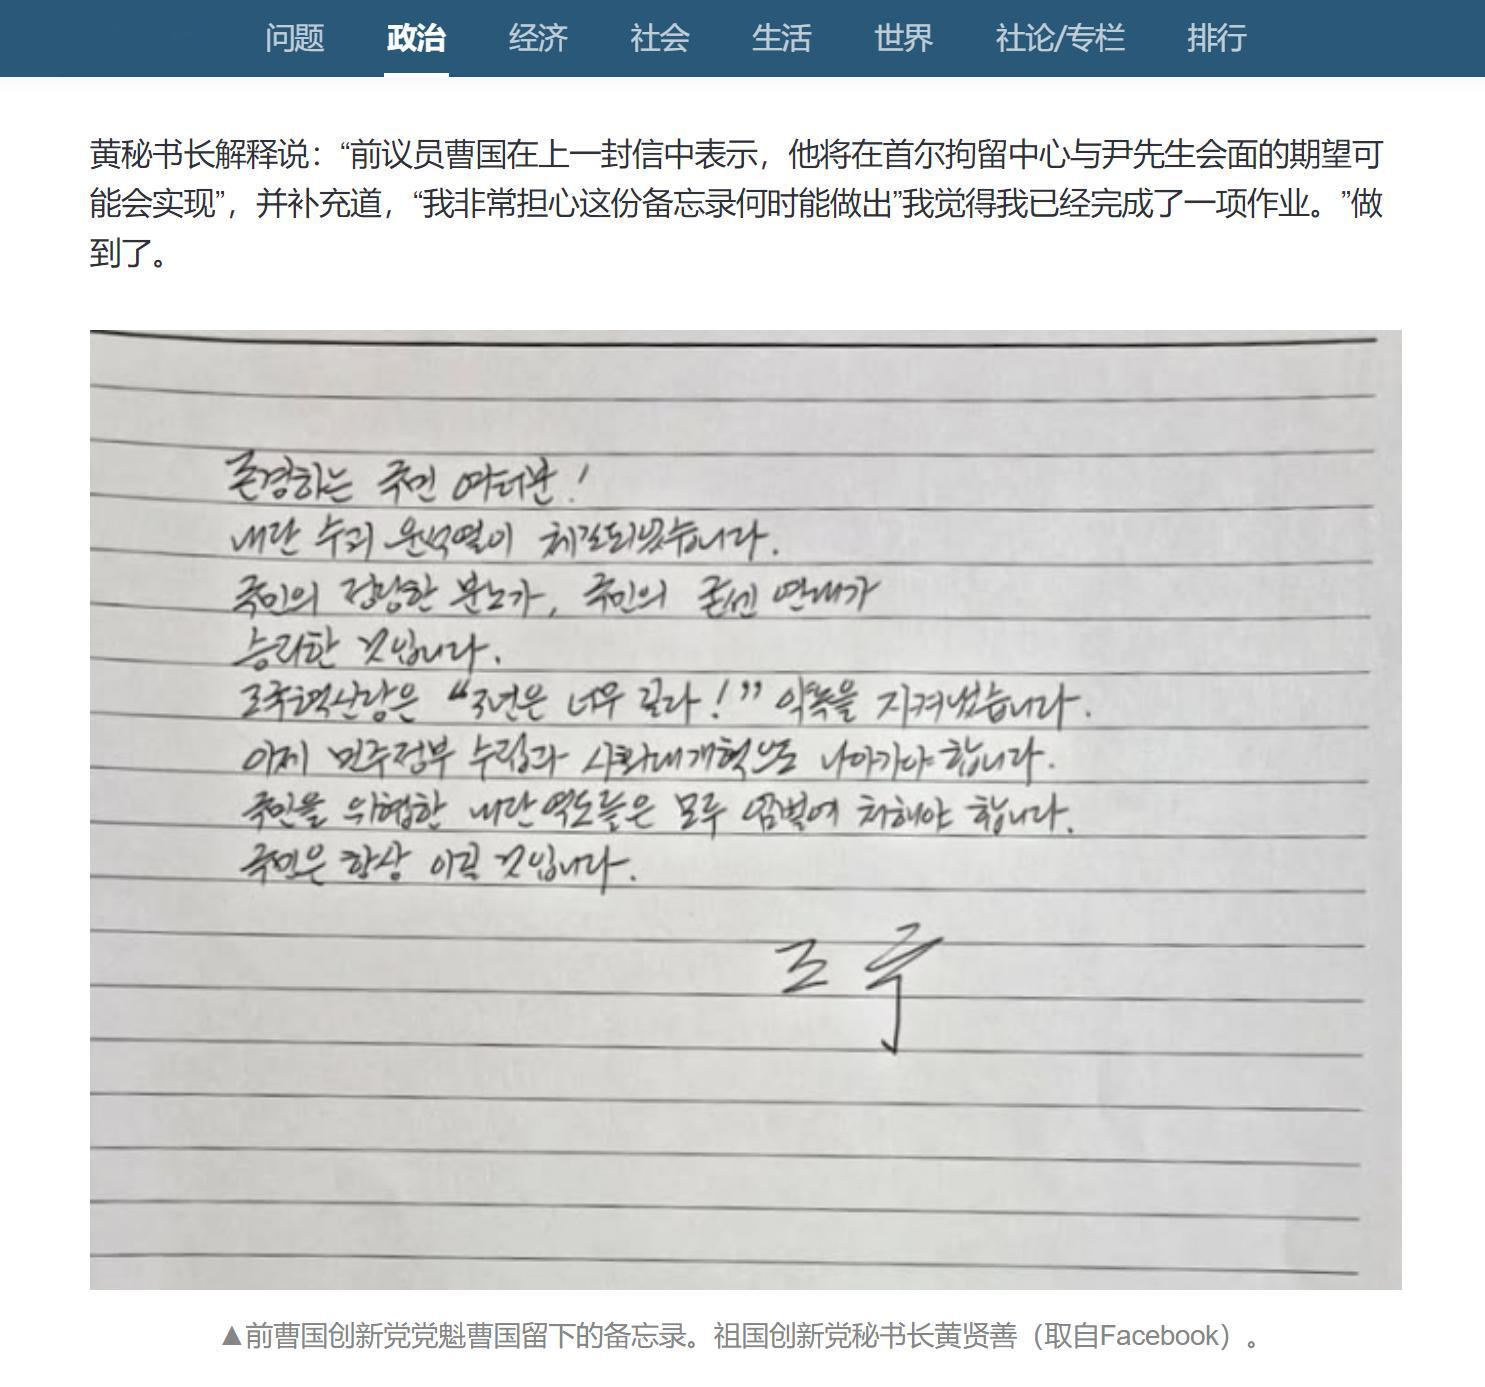 问题 政治 经济 社会 生活 世界 社论/专栏 排行
黄秘书长解释说：“前议员曹国在上一封信中表示，他将在首尔拘留中心与尹先生会面的期望可
能会实现”，并补充道，“我非常担心这份备忘录何时能做出”我觉得我已经完成了一项作业。”做
到了。
존경하는 국민 여러분!
내란 수괴 윤석열이 체포되었습니다.
국민의 정당한 분노가, 국민의 굳센 연대가
승리한 것입니다.
조국혁신당은 “3년은 너무 길다!” 약속을 지켜냈습니다.
이제 민주정부 수립과 사회대개혁으로 나아가야 합니다.
국민을 위협한 내란 역도들은 모두 엄벌에 처해야 합니다.
국민은 항상 이길 것입니다.
조국
▲前曹国创新党党魁曹国留下的备忘录。祖国创新党秘书长黄贤善（取自Facebook）。